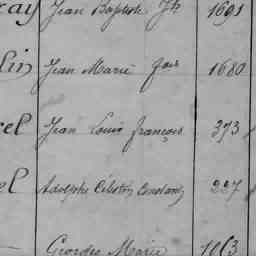 ray Jean Baptiste Jh 1691
lin Jean Marie fois 1680
rel Jean Louis françois 373
el Adolphe Célestin Constant 227
Georges Marie